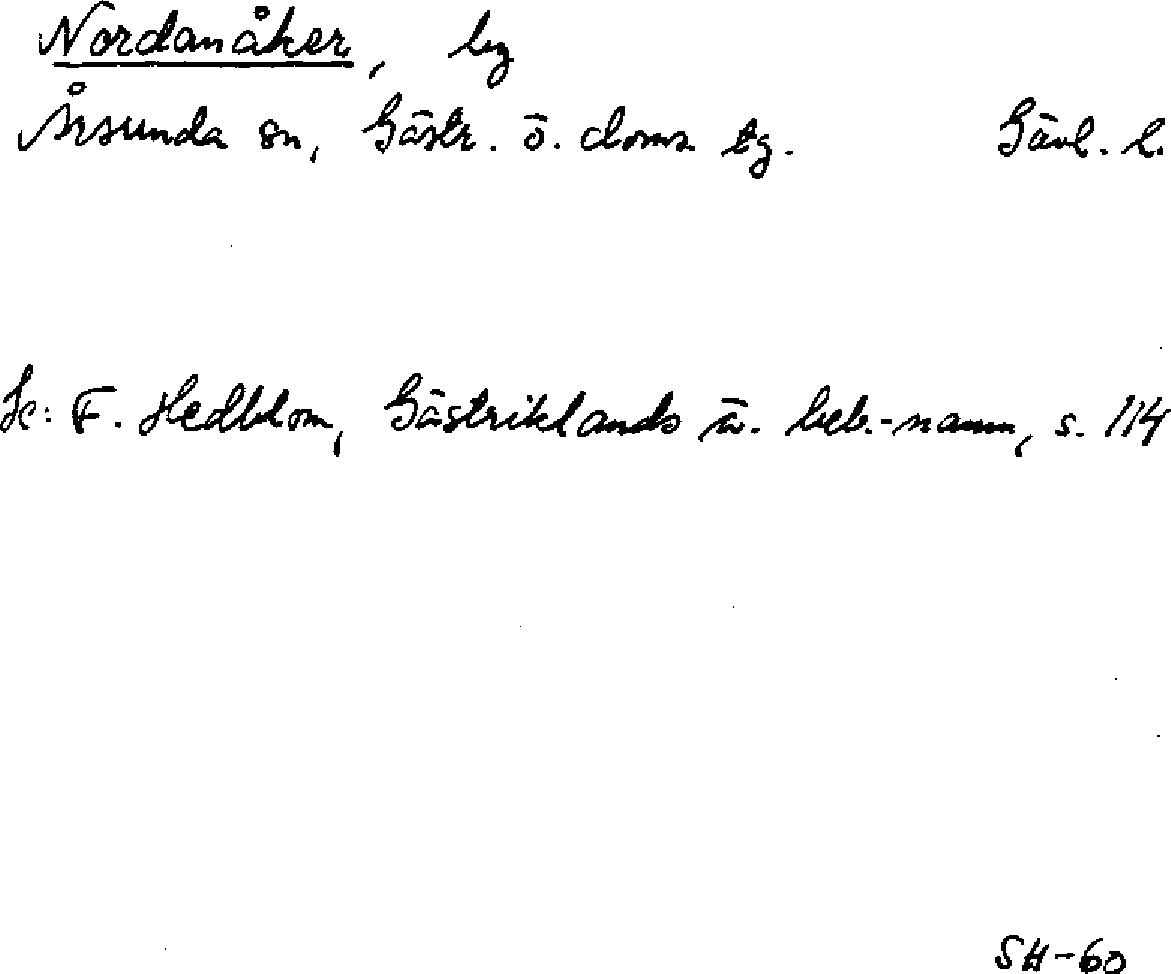 Nordanåker, by
Årsunda sn, Gästr. ö. doms. tg. Gävl. l.
Se: F. Hedblom, Gästriklands ä. beb.-namn, s. 114
SH-60